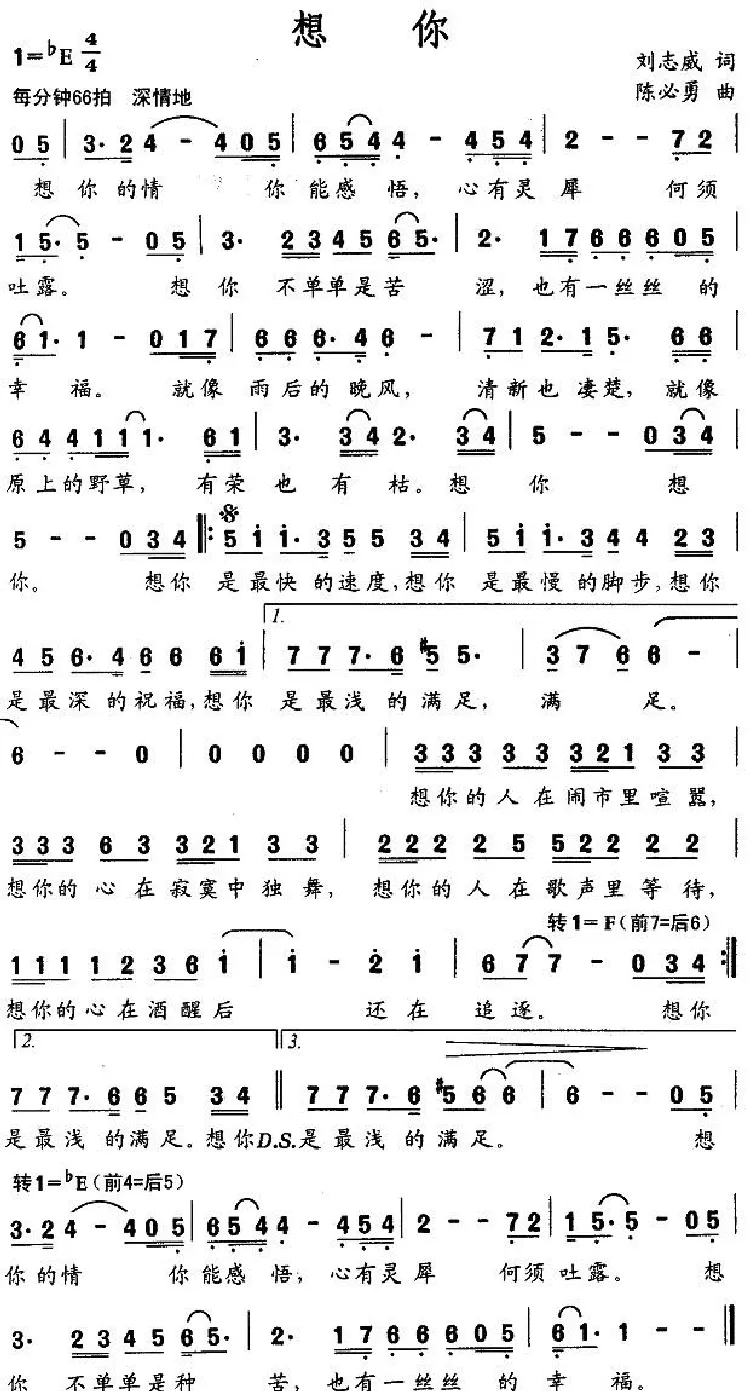 想 你
1=♭E 4/4
刘志威 词
每分钟66拍 深情地
陈必勇 曲
0 5 | 3· 2 4 - 4 0 5 | 6 5 4 4 - 4 5 4 | 2 - - 7 2 |
想你的情 你能感悟，心有灵犀 何须
1 5· 5 - 0 5 | 3· 2 3 4 5 6 5· | 2· 1 7 6 6 6 0 5 |
吐露。 想你 不单单是苦 涩，也有一丝丝的
6 1· 1 - 0 1 7 | 6 6 6· 4 6 - | 7 1 2· 1 5· 6 6 |
幸 福。 就像 雨后的晚风， 清新也凄楚，就像
6 4 4 1 1 1 1· 6 1 | 3· 3 4 2· 3 4 | 5 - - 0 3 4 |
原上的野草， 有荣也有枯。想 你 想
5 - - 0 3 4 ‖: 5 i i· 3 5 5 3 4 | 5 i i· 3 4 4 2 3 |
你。 想你 是最快的速度，想你 是最慢的脚步，想你
1.
4 5 6· 4 6 6 6 i | 7 7 7· 6 #5 5· | 3 7 6 6 - |
是最深的祝福，想你 是最浅的满足， 满 足。
6 - - 0 | 0 0 0 0 | 3 3 3 3 3 3 2 1 3 3 |
想你的人在闹市里喧嚣，
3 3 3 6 3 3 2 1 3 3 | 2 2 2 2 5 5 2 2 2 2 |
想你的心在寂寞中独舞， 想你的人在歌声里等待，
转1=F(前7=后6)
1 1 1 1 2 3 6 i | i - 2 i | 6 7 7 - 0 3 4 :‖
想你的心在酒醒后 还在 追逐。 想你
2. 3.
7 7 7· 6 6 5 3 4 ‖ 7 7 7· 6 #5 6 6 | 6 - - 0 5 |
是最浅的满足。想你D.S.是最浅的满足。 想
转1=♭E(前4=后5)
3· 2 4 - 4 0 5 | 6 5 4 4 - 4 5 4 | 2 - - 7 2 | 1 5· 5 - 0 5 |
你的情 你能感悟，心有灵犀 何须吐露。 想
3· 2 3 4 5 6 5· | 2· 1 7 6 6 6 0 5 | 6 1· 1 - - ‖
你 不单单是种 苦，也有一丝丝的幸 福。